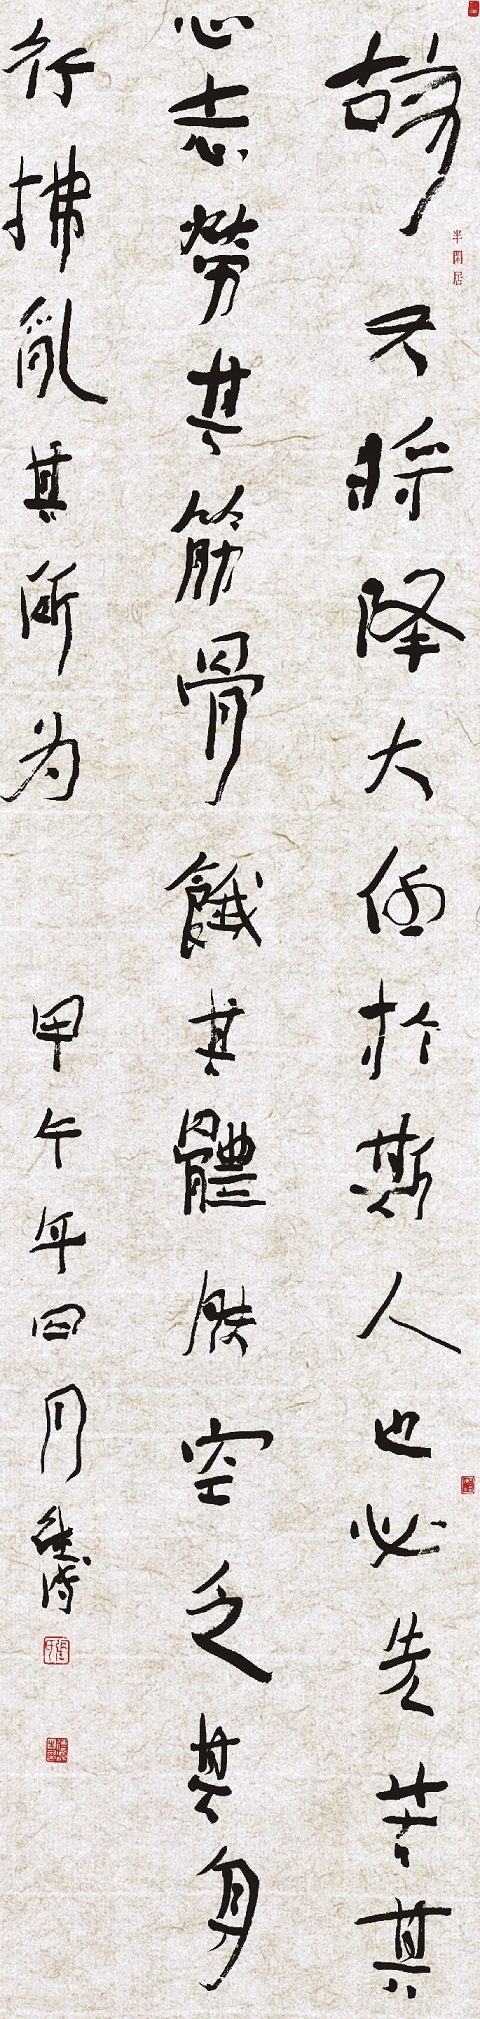 故天将降大任於斯人也必先苦其
心志劳其筋骨饿其體膚空乏其身
行拂亂其所为
甲午年四月
半閒居